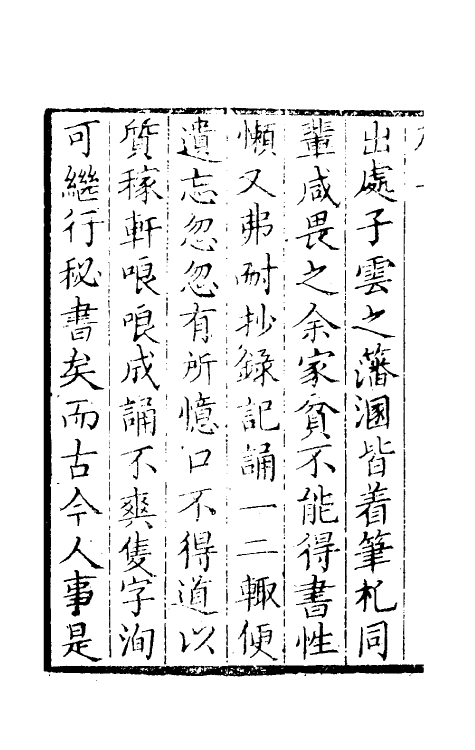 出處子雲之藩溷皆着筆札同
輩咸畏之余家貧不能得書性
懶又弗耐抄錄記誦一二輙便
遺忘忽忽有所憶口不得道以
質稼軒哏哏成誦不爽隻字洵
可繼行秘書矣而古今人事是